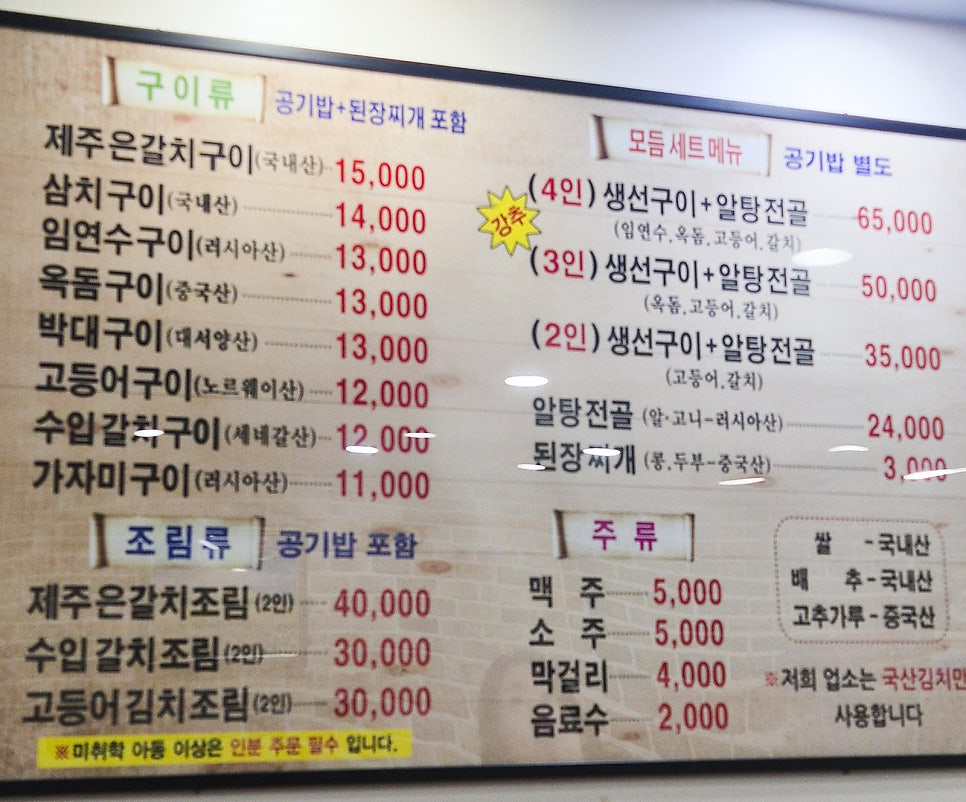 구이류 공기밥+된장찌개 포함
제주은갈치구이(국내산) 15,000
삼치구이(국내산) 14,000
임연수구이(러시아산) 13,000
옥돔구이(중국산) 13,000
박대구이(대서양산) 13,000
고등어구이(노르웨이산) 12,000
수입갈치구이(세네갈산) 12,000
가자미구이(러시아산) 11,000
조림류 공기밥 포함
제주은갈치조림(2인) 40,000
수입갈치조림(2인) 30,000
고등어김치조림(2인) 30,000
※미취학 아동 이상은 인분 주문 필수 입니다.
모듬세트메뉴 공기밥 별도
강추
(4인) 생선구이+알탕전골 65,000
(임연수.옥돔.고등어.갈치)
(3인) 생선구이+알탕전골 50,000
(옥돔.고등어.갈치)
(2인) 생선구이+알탕전골 35,000
(고등어.갈치)
알탕전골 (알·고니-러시아산) 24,000
된장찌개 (콩.두부-중국산) 3,000
주류
맥주 5,000
소주 5,000
막걸리 4,000
음료수 2,000
쌀 - 국내산
배추 - 국내산
고추가루 - 중국산
※저희 업소는 국산김치만
사용합니다